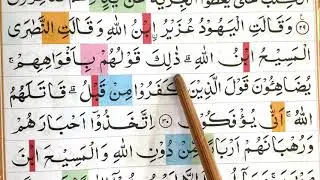 الكتب حتى يعطوا الجزية عن
٢٩ وَقَالَتِ الْيَهُودُ عُزَيْرُ ابْنُ اللهِ وَقَالَتِ النَّصٰرَى
الْمَسِيحُ ابْنُ اللهِ ۖ ذٰلِكَ قَوْلُهُمْ بِاَفْوَاهِهِمْ ۚ
يُضَاهِئُونَ قَوْلَ الَّذِينَ كَفَرُوا مِنْ قَبْلُ ۚ قَاتَلَهُمُ
اللهُ ۚ اَنّٰى يُؤْفَكُونَ ٣٠ اِتَّخَذُوا اَحْبَارَهُمْ
وَرُهْبَانَهُمْ اَرْبَابًا مِنْ دُونِ اللهِ وَالْمَسِيحَ ابْنَ